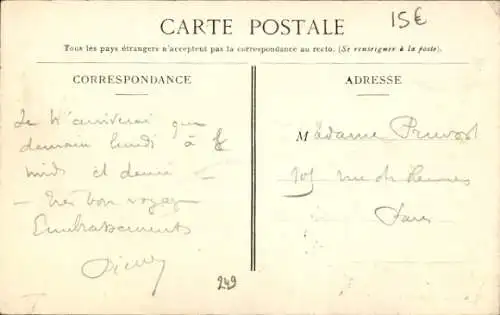 CARTE POSTALE
15€
Tous les pays étrangers n'acceptent pas la correspondance au recto. (Se renseigner à la poste).
CORRESPONDANCE
ADRESSE
Je n'arriverai que
demain lundi à
midi et demie —
— Très bon voyage
Embrassements
Pierre
Madame Pruvost
105 rue de Rennes
Paris
249